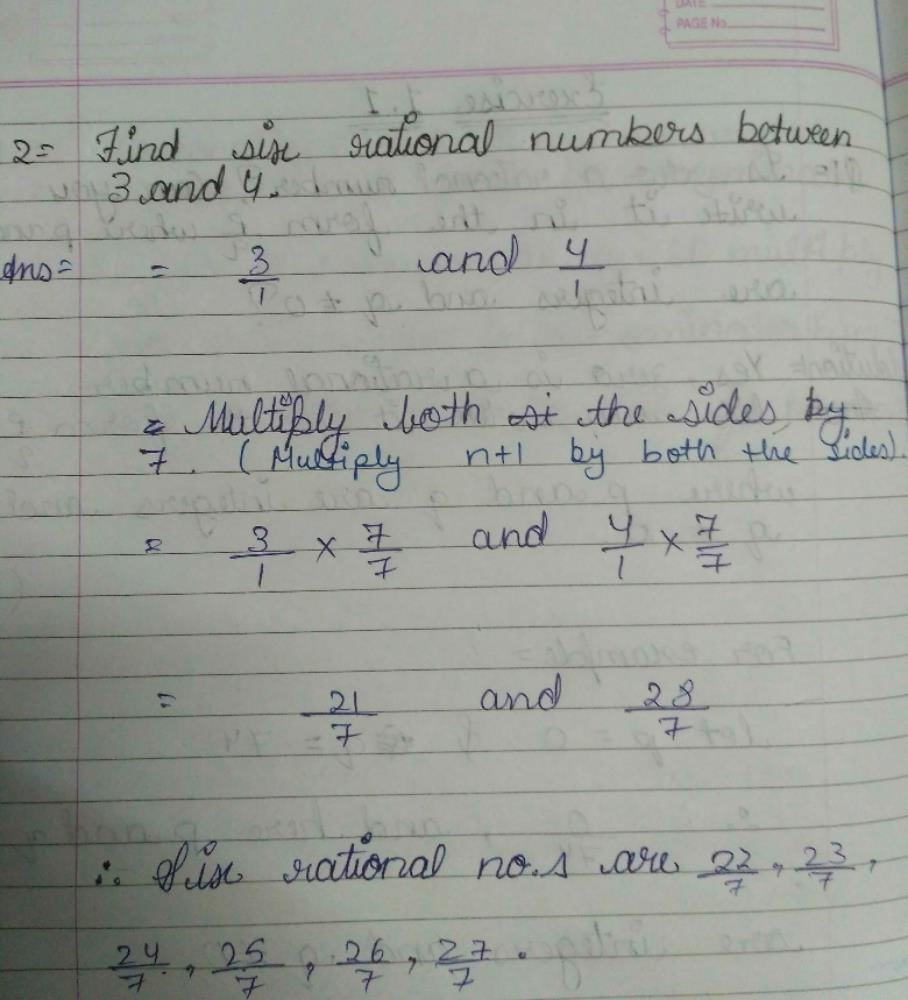 DATE
PAGE No.
2= Find six rational numbers between
3 and 4.
Ans= = 3/1 and 4/1
= Multiply both the sides by
7. (Multiply n+1 by both the sides).
= 3/1 × 7/7 and 4/1 × 7/7
= 21/7 and 28/7
∴ Six rational no.s are 22/7, 23/7,
24/7, 25/7, 26/7, 27/7.